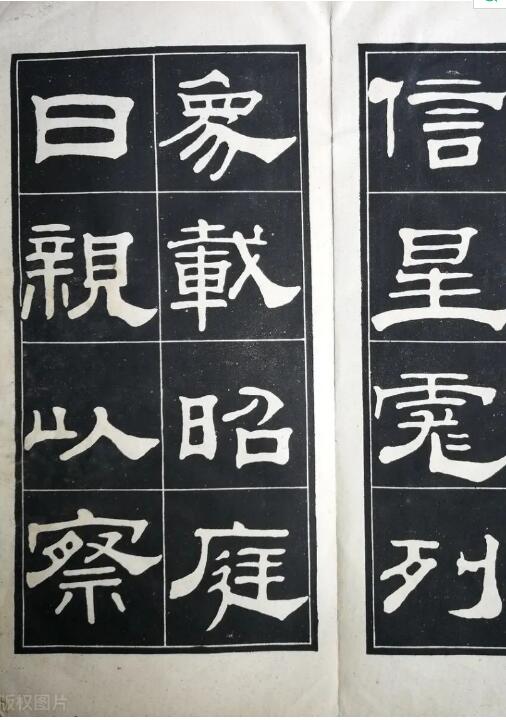 信星彪列
象載昭庭
日親以察
版权图片